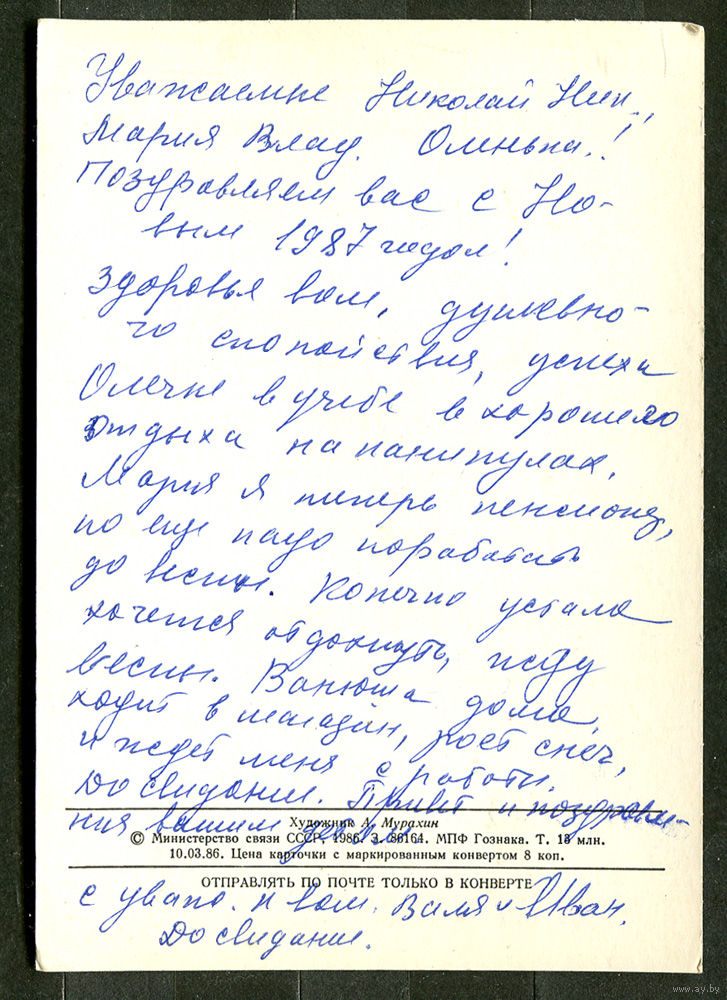 Уважаемые Николай Ник.,
Мария Влад. Оленька.!
Поздравляем вас с Но-
вым 1987 годом!
Здоровья вам, душевно-
го спокойствия, успеха
Олечке в учебе в хорошего
отдыха на каникулах.
Мария я теперь пенсионер,
но еще надо поработать
до весны. Конечно устала
хочется отдохнуть, жду
весны. Ванюша дома,
ходит в магазин, роет снег,
и ждет меня с работы.
До свидание. Привет и поздравле-
ния вашим
Художник А. Мурахин
© Министерство связи СССР, 1986. З. 86164. МПФ Гознака. Т. 13 млн.
10.03.86. Цена карточки с маркированным конвертом 8 коп.
ОТПРАВЛЯТЬ ПО ПОЧТЕ ТОЛЬКО В КОНВЕРТЕ
с уваж. к вам. Валя и Иван.
До свидание.
www.ay.by